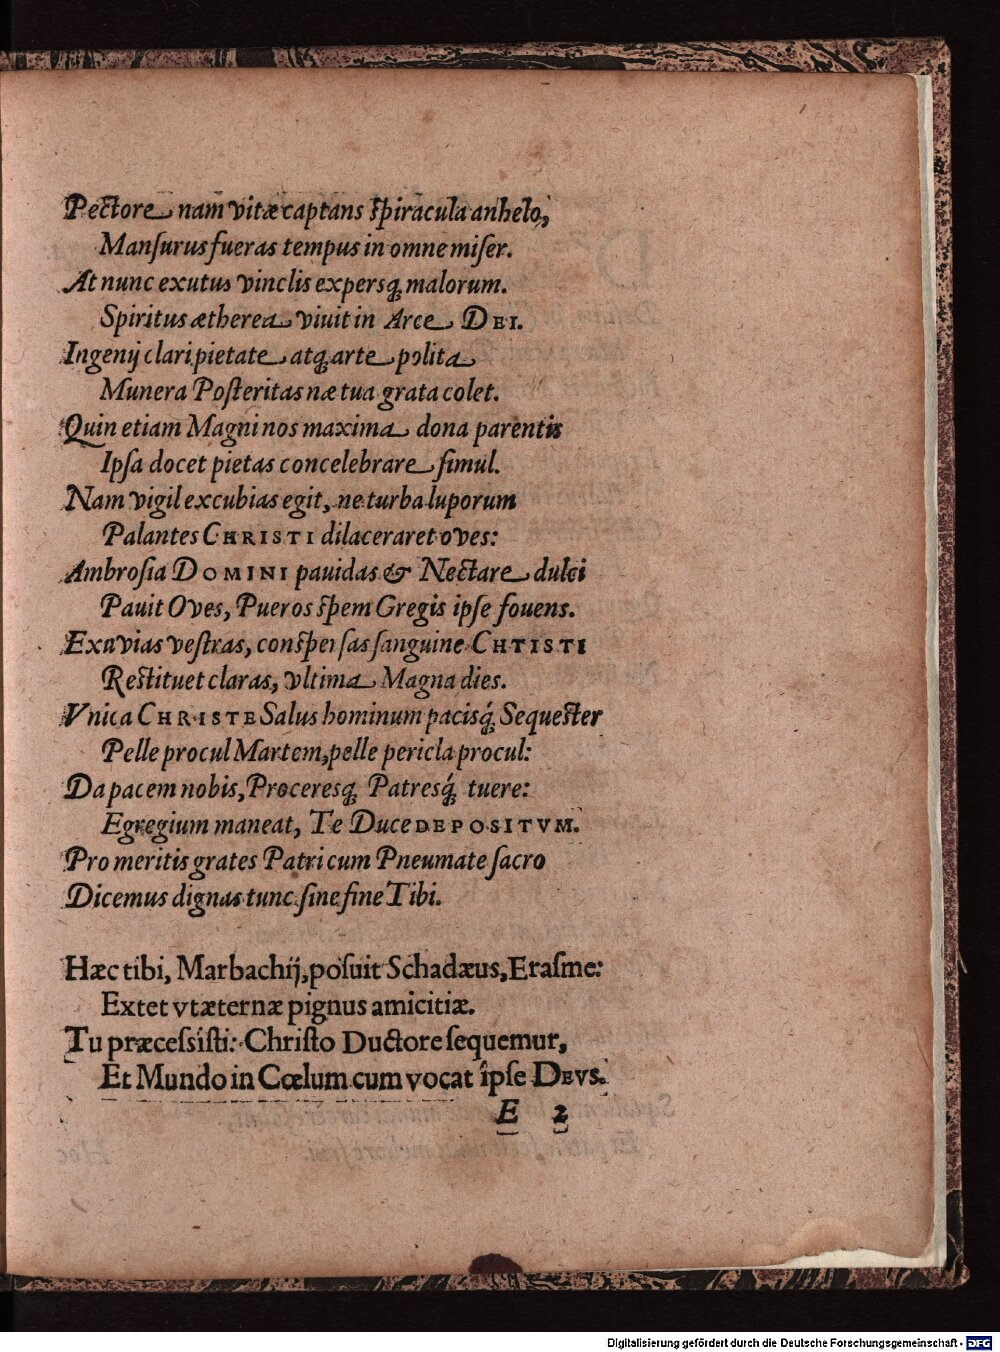 Pectore nam vitæ captans ſpiracula anhelo,
Manſurus fueras tempus in omne miſer.
At nunc exutus vinclis expersq́ malorum.
Spiritus ætherea viuit in Arce DEI.
Ingenij clari pietate atq́ arte polita
Munera Poſteritas næ tua grata colet.
Quin etiam Magni nos maxima dona parentis
Ipſa docet pietas concelebrare ſimul.
Nam vigil excubias egit, ne turba luporum
Palantes CHRISTI dilaceraret oves:
Ambroſia DOMINI pauidas & Nectare dulci
Pavit Oves, Pueros ſpem Gregis ipſe fouens.
Exuvias veſtras, conſperſas ſanguine CHTISTI
Reſtituet claras, vltima Magna dies.
Vnica CHRISTE Salus hominum pacisq́ Sequeſter
Pelle procul Martem, pelle pericla procul:
Da pacem nobis, Proceresq́ Patresq́ tuere:
Egregium maneat, Te Duce DEPOSITVM.
Pro meritis grates Patri cum Pneumate ſacro
Dicemus dignas tunc ſine fine Tibi.
Hæc tibi, Marbachij, poſuit Schadæus, Eraſme:
Extet vt æternæ pignus amicitiæ.
Tu præceſsiſti: Chriſto Ductore ſequemur,
Et Mundo in Cœlum cum vocat îpſe DEVS.
E 2
Digitalisierung gefördert durch die Deutsche Forschungsgemeinschaft - DFG